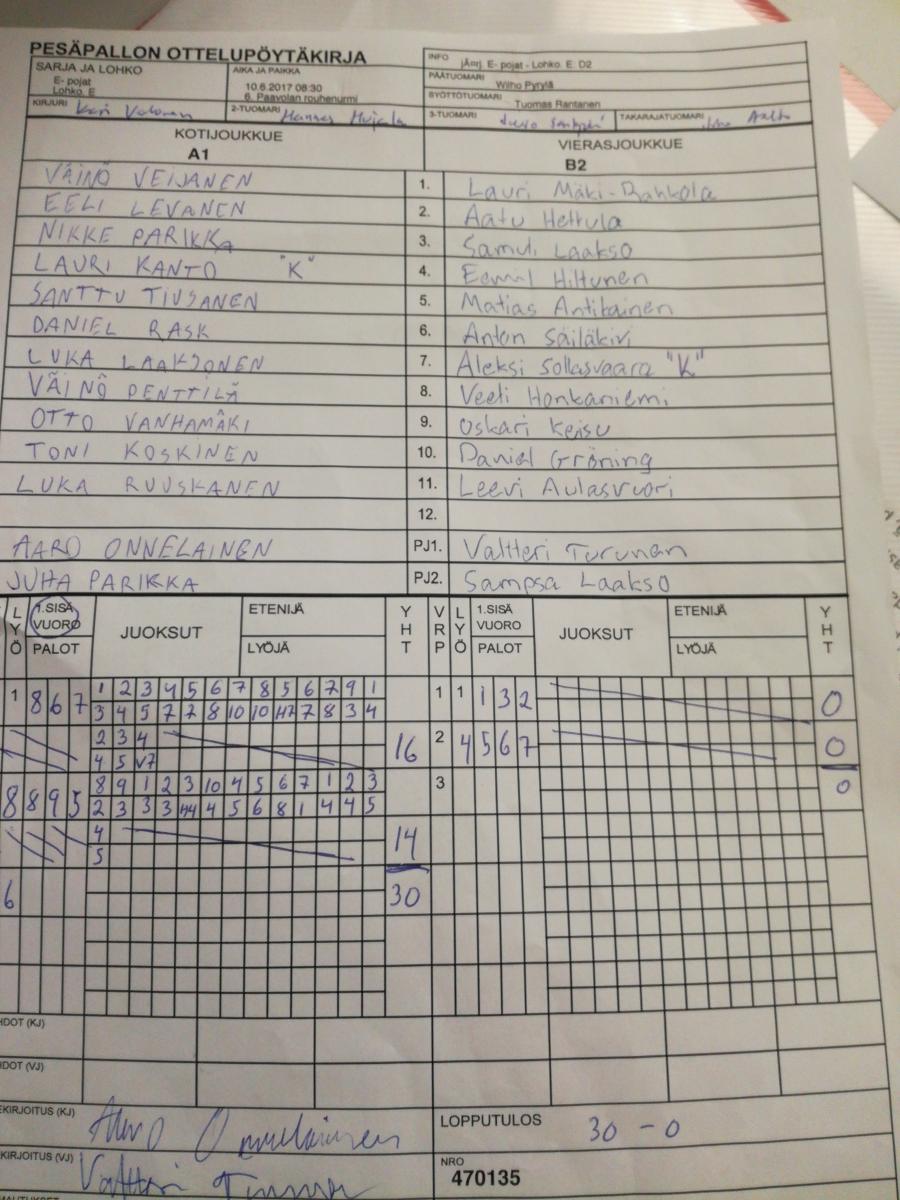 PESÄPALLON OTTELUPÖYTÄKIRJA
SARJA JA LOHKO
E- pojat
Lohko. E
AIKA JA PAIKKA
10.6.2017 08:30
6. Paavolan rouhenurmi
INFO
jÄnrj. E- pojat - Lohko. E: D2
PÄÄTUOMARI
Wilho Pyrylä
SYÖTTÖTUOMARI
Tuomas Rantanen
KIRJURI
2-TUOMARI Hannes
3-TUOMARI
TAKARAJATUOMARI Aalto
KOTIJOUKKUE
A1
VIERASJOUKKUE
B2
VÄINÖ VEIJANEN 1. Lauri Mäki-Rahkola
EELI LEVANEN 2. Aatu Hettula
NIKKE PARIKKA 3. Samuli Laakso
LAURI KANTO "K" 4. Eemil Hiltunen
SANTTU TIUSANEN 5. Matias Antikainen
DANIEL RASK 6. Anton Säiläkivi
LUKA LAAKSONEN 7. Aleksi Sollasvaara "K"
VÄINÖ PENTTILÄ 8. Veeti Honkaniemi
OTTO VANHAMÄKI 9. Oskari Keisu
TONI KOSKINEN 10. Daniel Gröning
LUKA RUUSKANEN 11. Leevi Aulasvuori
12.
AARO ONNELAINEN PJ1. Valtteri Turunen
JUHA PARIKKA PJ2. Sampsa Laakso
LYÖ 1.SISÄ VUORO PALOT JUOKSUT ETENIJÄ LYÖJÄ YHT VRP LYÖ 1.SISÄ VUORO PALOT JUOKSUT ETENIJÄ LYÖJÄ YHT
1 8 6 7 1 2 3 4 5 6 7 8 5 6 7 9 1 1 1 1 3 2 0
3 4 5 7 7 8 10 10 7 8 3 4
2 3 4 16 2 4 5 6 7 0
4 5 V7
8 8 9 5 8 9 1 2 3 10 4 5 6 7 1 2 3 3 0
2 3 3 3 4 5 6 8 1 4 4 5
4 14
5
6 30
HDOT (KJ)
HDOT (VJ)
EKIRJOITUS (KJ) Aaro Onnelainen LOPPUTULOS 30 - 0
EKIRJOITUS (VJ) Valtteri NRO
470135